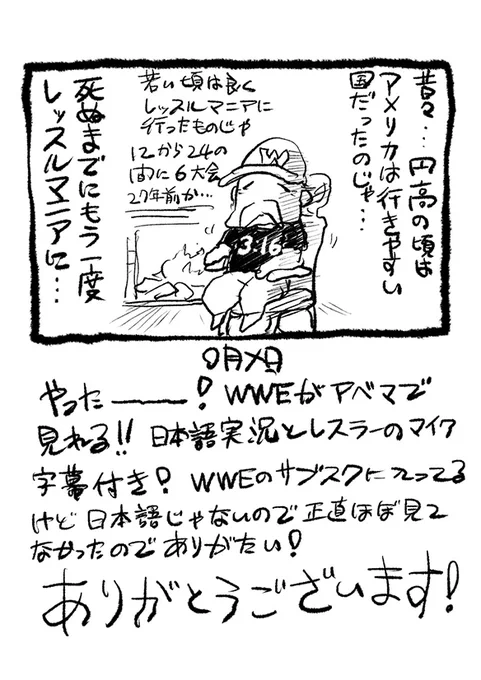 昔々…円高の頃は
アメリカは行きやすい
国だったのじゃ…
若い頃は良く
レッスルマニアに
行ったものじゃ
12から24の
間に6大会
27年前か…
W
3:16
死ぬまでにもう一度
レッスルマニアに…
〇月×日
やったー！WWEがアベマで
見れる!!日本語実況とレスラーのマイク
字幕付き！WWEのサブスクに入ってる
けど日本語じゃないので正直ほぼ見て
なかったのでありがたい！
ありがとうございます！